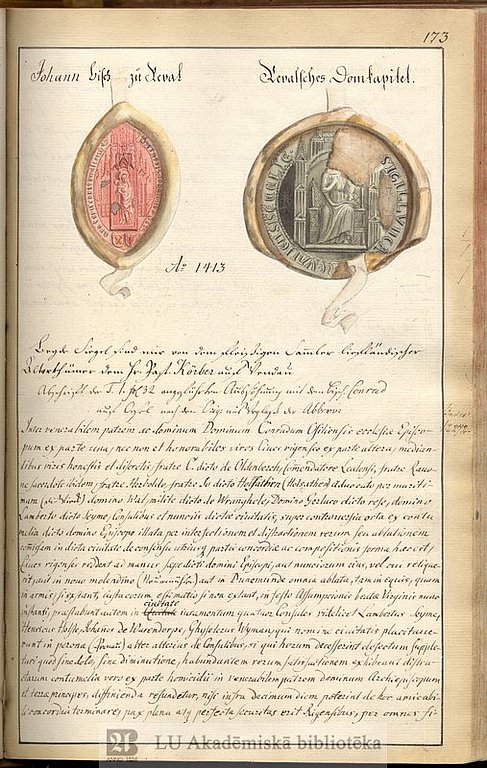 173
Johann Bisch. zu Reval
Revalsches Domkapitel.
SIGILLVM CA
REVALIENSIS ECCLESIE
Ao 1413
Beyde Siegel sind mir von dem fleissigen Samler livländischer
Alterthümer dem Hr. Past. Körber aus Wendau
Abschrift der T. 1. fol 32 angeführten Aussöhnung mit dem Bisch. Conrad
aus Oesel nach dem
Inter venerabilem patrem ac dominum Dominum Conradum Osiliensis ecclesiae Episco-
pum ex parte una, nec non et honorabiles viros Cives rigenses ex parte altera, median-
tibus viris honestis et discretis, fratre C. dicto de Oldenbocch, Comendatore Lealensi, fratre
sacerdote ibidem, fratre Herboldo, fratre Jo dicto
domino Wol. milite dicto de Wranghele, Domino Gerlaco dicto rese, domino
Lamberto dicto Seyme, Consulibus et nunciis dictae civitatis, super controversia orta ex contu
melia dicto domino Episcopo illata per interfectionem et distractionem rerum seu ablationem
in dicta civitate de consensu utriusque partis concordiae ac compositionis forma haec est,
Cives rigenses reddent ad manus saepe dicti domini Episcopi, aut nunciorum ejus, vel
rit, aut in novo molendino aut in Dunemunde omnia ablata, tam in equis, quam
in armis, si extant, justa eorum estimatio si non extant, in festo Assumpcionis beatae Virginis nunc
instanti, praestabunt autem in civitate juramentum quatuor Consules videlicet Lambertus Seyme,
Henricus Johannes de Warendorpe, Ghyselerus Wyman, qui nomine civitatis placitave-
runt in perona alter alterius de Consulibus, si qui horum decesserint defectum supple-
turi quod sine dolo, sine diminutione, habundantem rerum satisfactionem exhibeant distra-
ctarum contumelia vero ex parte homicidii in venerabilem patrem dominum Archiepiscopum
et terrae principes diffinienda refundetur, nisi infra decimum diem poterint de hoc amicabi-
li concordia terminare, pax plena atque perfecta securitas erit Rigensibus, per omnes fi-
LU Akadēmiskā bibliotēka